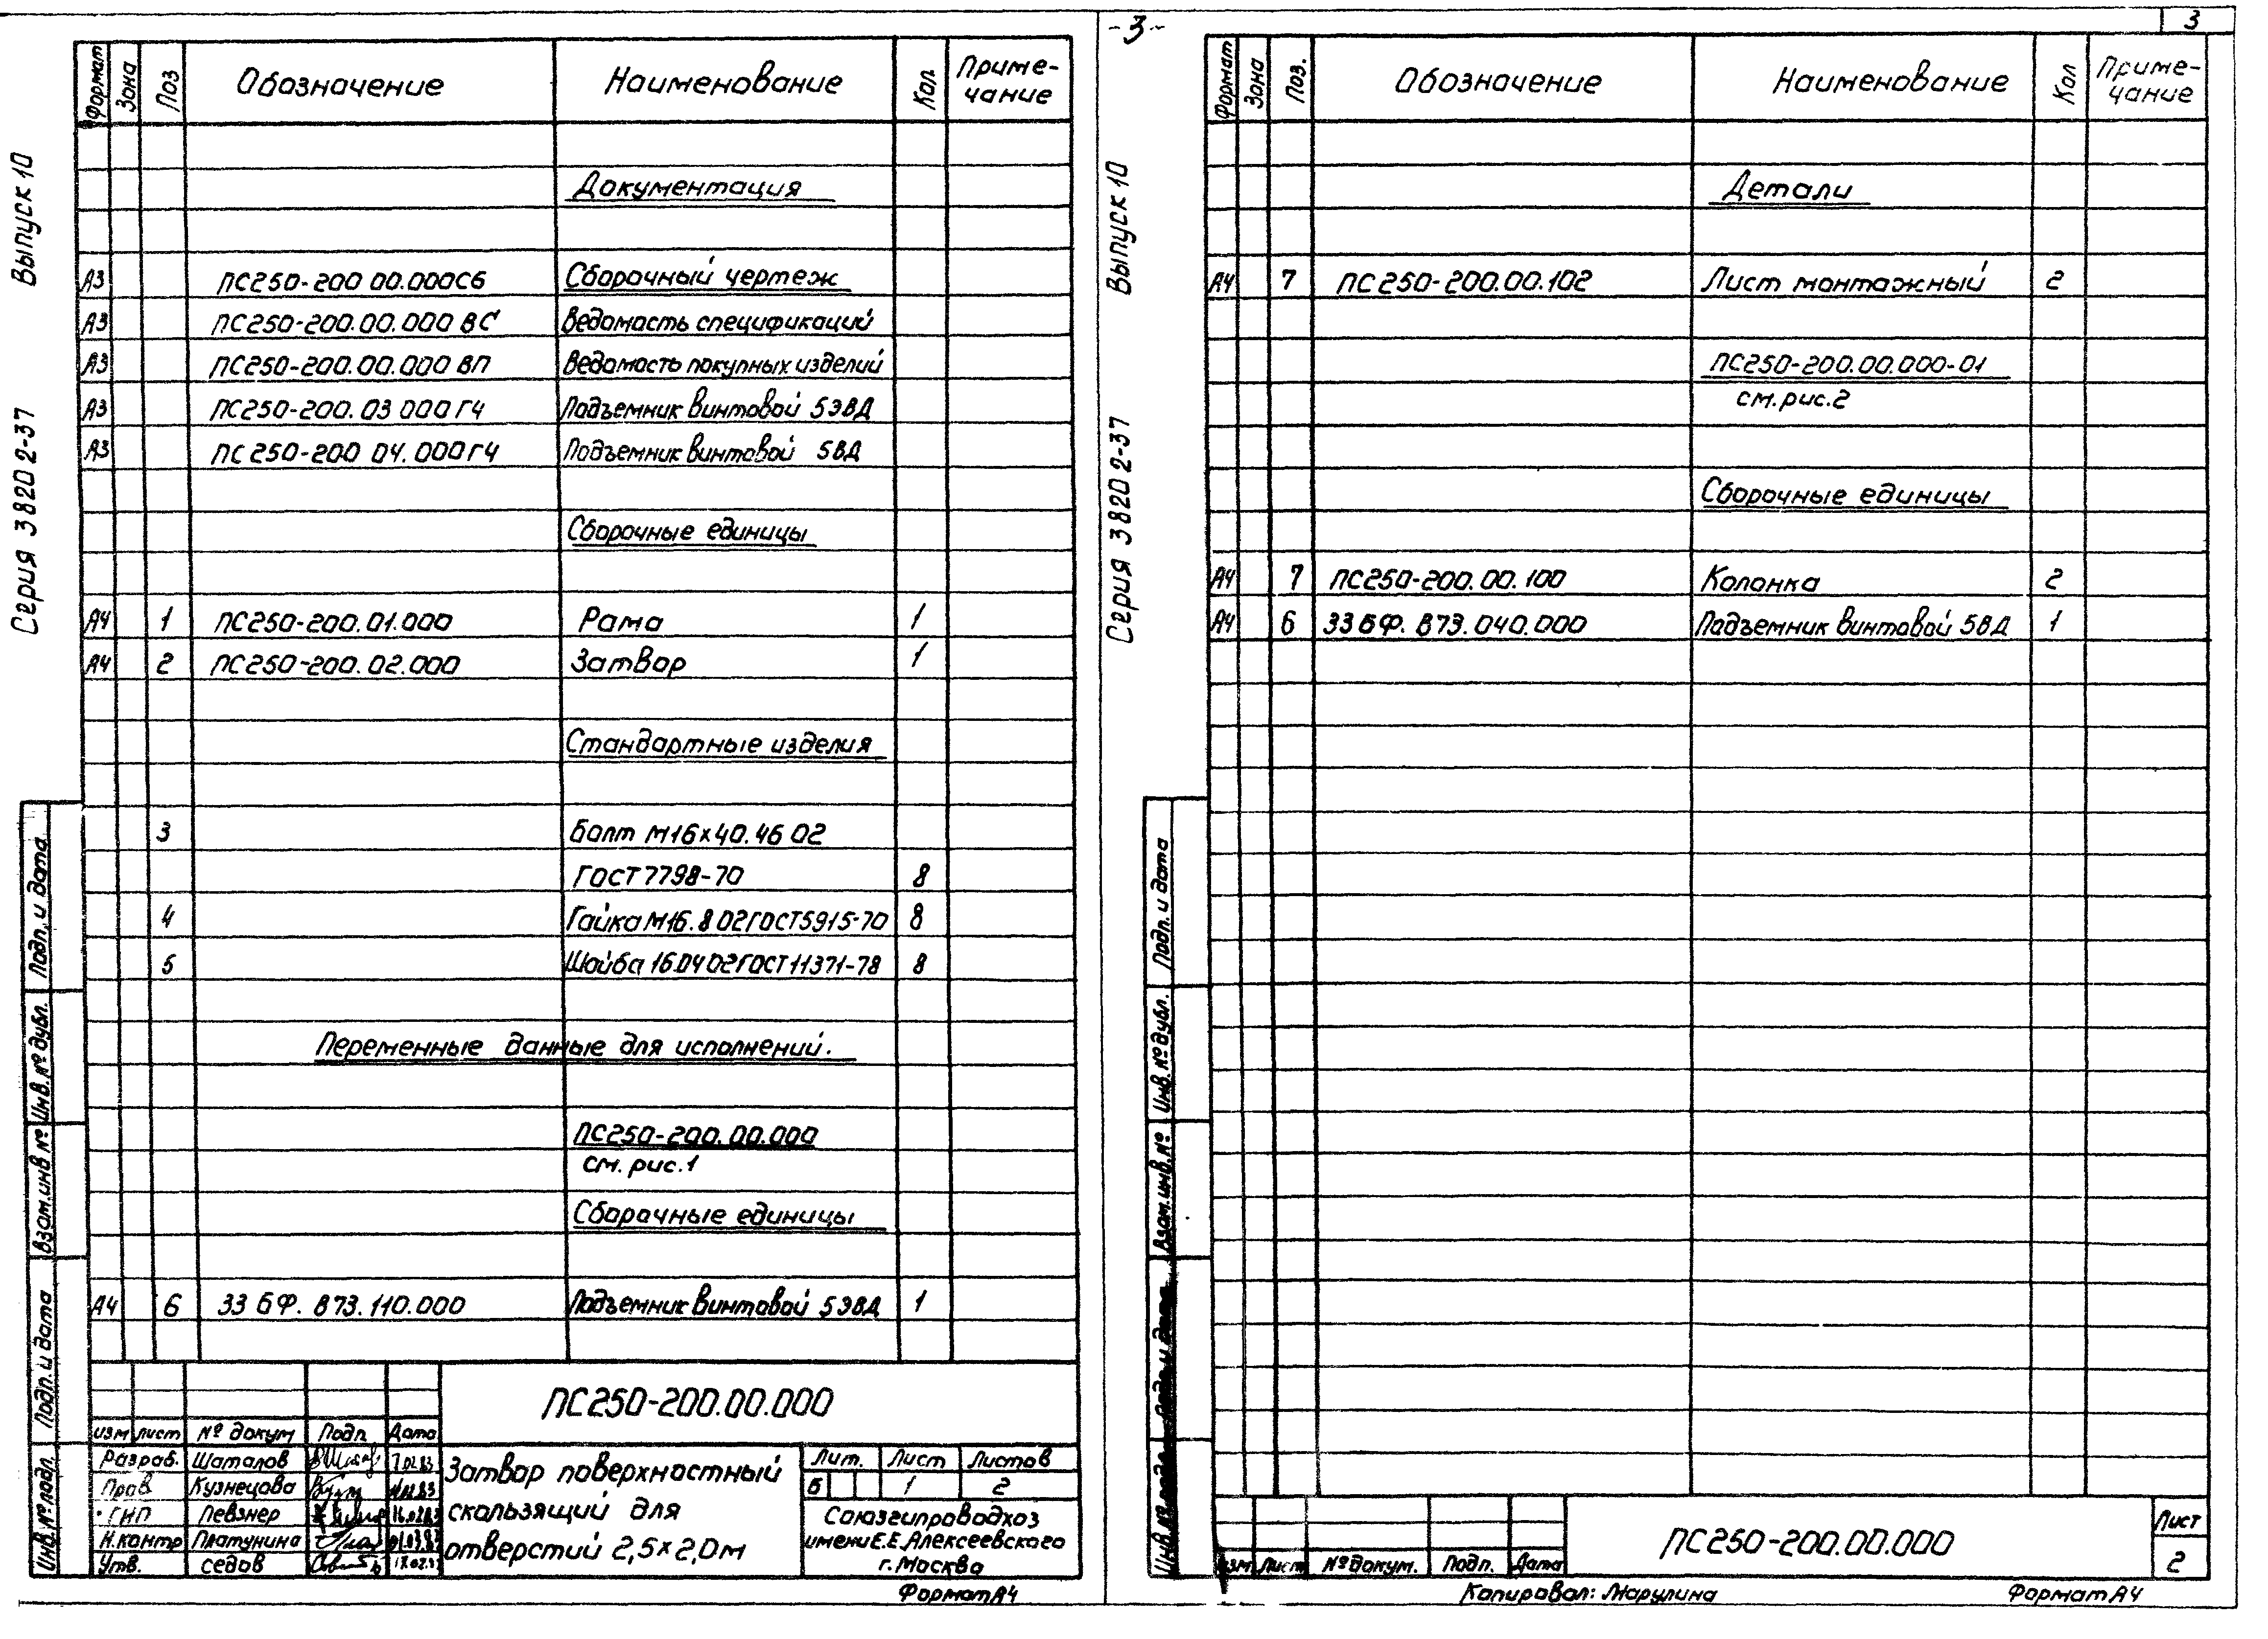 - 3 -
3
Серия 3 820 2-37 Выпуск 10
Формат Зона Поз Обозначение Наименование Кол Приме-
чание
Документация
А3 ПС250-200 00.000СБ Сборочный чертеж
А3 ПС250-200.00.000 ВС Ведомость спецификаций
А3 ПС250-200.00.000 ВП Ведомость покупных изделий
А3 ПС250-200.03 000 ГЧ Подъемник винтовой 5ЭВД
А3 ПС250-200 04.000 ГЧ Подъемник винтовой 5ВД
Сборочные единицы
А4 1 ПС250-200.01.000 Рама 1
А4 2 ПС250-200.02.000 Затвор 1
Стандартные изделия
3 Болт М16×40.46 02
ГОСТ 7798-70 8
4 Гайка М16.8 02 ГОСТ 5915-70 8
5 Шайба 16.04 02 ГОСТ 11371-78 8
Переменные данные для исполнений.
ПС250-200.00.000
см. рис.1
Сборочные единицы
А4 6 33 БФ. 873.110.000 Подъемник винтовой 5ЭВД 1
Инв.№ подл. Подп. и дата Взам.инв № Инв.№ дубл. Подп. и дата
ПС250-200.00.000
изм лист № докум Подп Дата
Разраб. Шаталов
Пров Кузнецова
ГИП Певзнер
Н.контр Платунина
Утв. Седов
Затвор поверхностный
скользящий для
отверстий 2,5×2,0м
Лит. Лист Листов
Б 1 2
Союзгипроводхоз
имени Е.Е.Алексеевского
г.Москва
Формат А4
Серия 3 820 2-37 Выпуск 10
Формат Зона Поз. Обозначение Наименование Кол Приме-
чание
Детали
А4 7 ПС250-200.00.102 Лист монтажный 2
ПС250-200.00.000-01
см.рис.2
Сборочные единицы
А4 7 ПС250-200.00.100 Колонка 2
А4 6 33 БФ. 873.040.000 Подъемник винтовой 5ВД 1
Инв.№ подл. Подп. и дата Взам.инв.№ Инв.№ дубл. Подп. и дата
изм Лист № докум. Подп. Дата
ПС250-200.00.000
Лист
2
Копировал: Марулина Формат А4